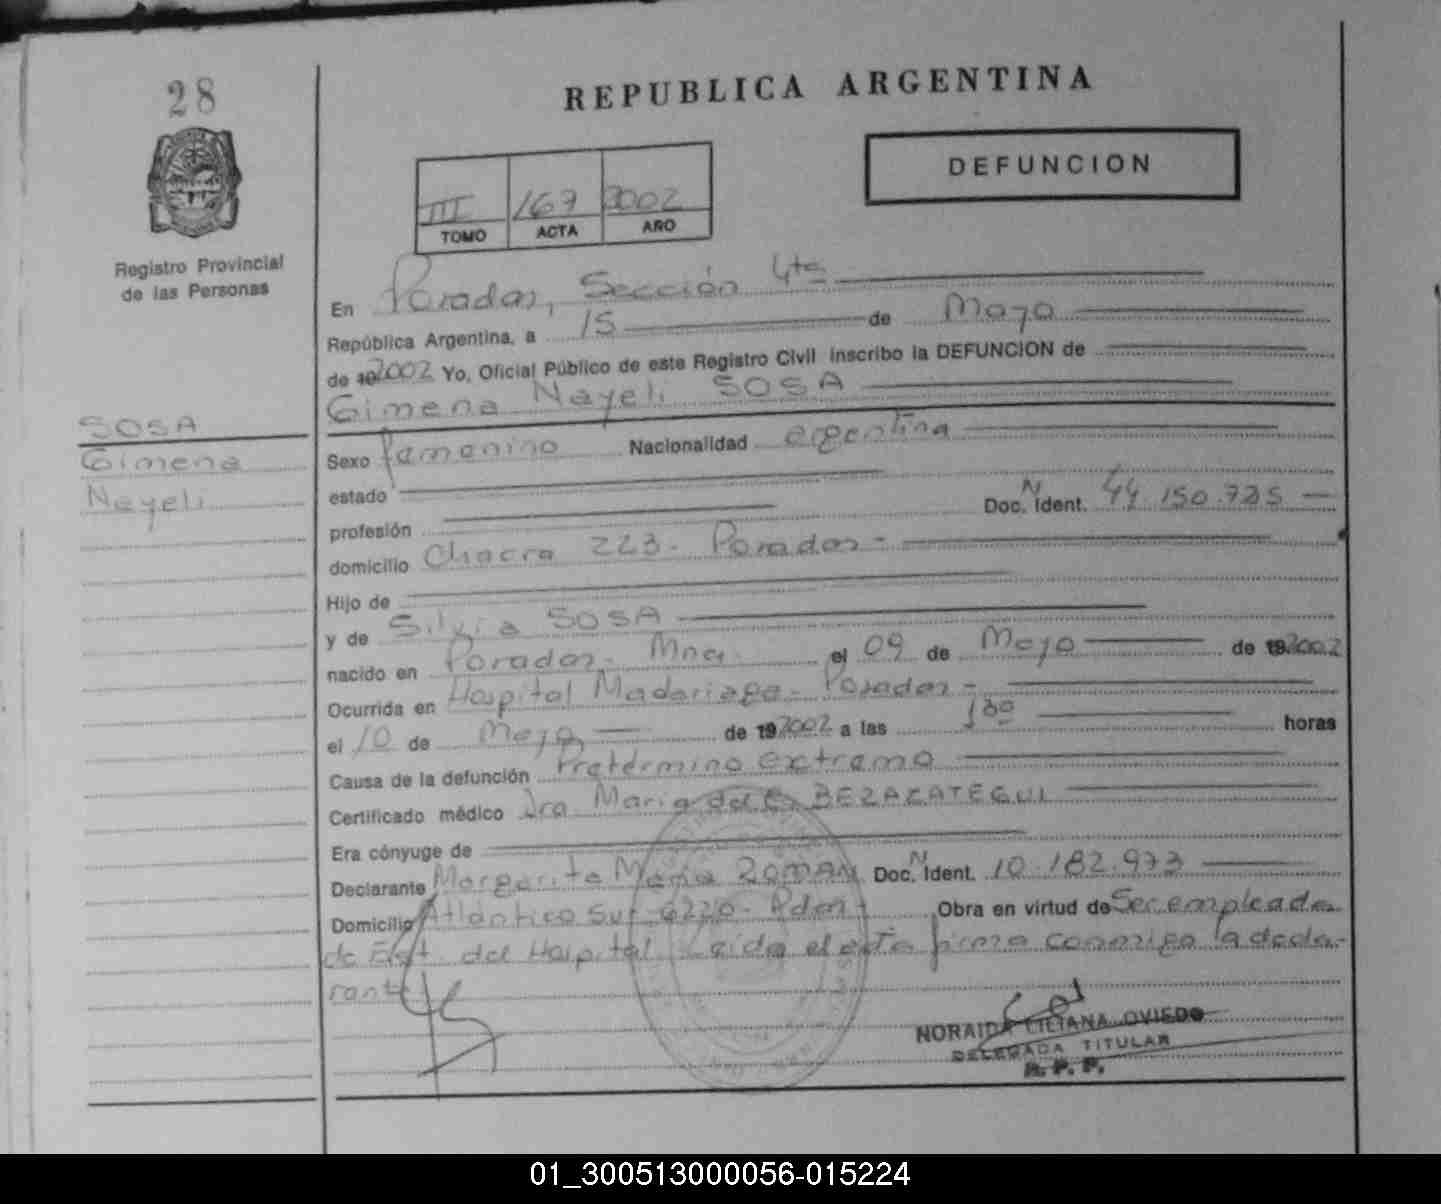 28
REPUBLICA ARGENTINA
DEFUNCION
III 167 2002
TOMO ACTA AÑO
Registro Provincial
de las Personas
En Posadas, Sección 4ta
República Argentina, a 15 de Mayo
de 192002 Yo, Oficial Público de este Registro Civil inscribo la DEFUNCION de
Gimena Nayeli SOSA
SOSA
Gimena
Nayeli
Sexo femenino Nacionalidad argentina
estado
profesión Doc. N Ident. 44.150.725
domicilio Chacra 223 - Posadas -
Hijo de
y de Silvia SOSA
nacido en Posadas - Mnes. el 09 de Mayo de 192002
Ocurrida en Hospital Madariaga - Posadas -
el 10 de Mayo de 192002 a las 1 30 horas
Causa de la defunción Pretérmino extremo
Certificado médico Dra Maria del C. BEZAZATEGUI
Era cónyuge de
Declarante Margarita Maria ROMAN Doc. N Ident. 10.182.973
Domicilio Atlántico Sur 6220 - Pdas - Obra en virtud de Ser empleada
de Est. del Hospital. Leída el acta firma conmigo la decla-
rante
NORAIDA LILIANA OVIEDO
DELEGADA TITULAR
R. P. P.
01_300513000056-015224